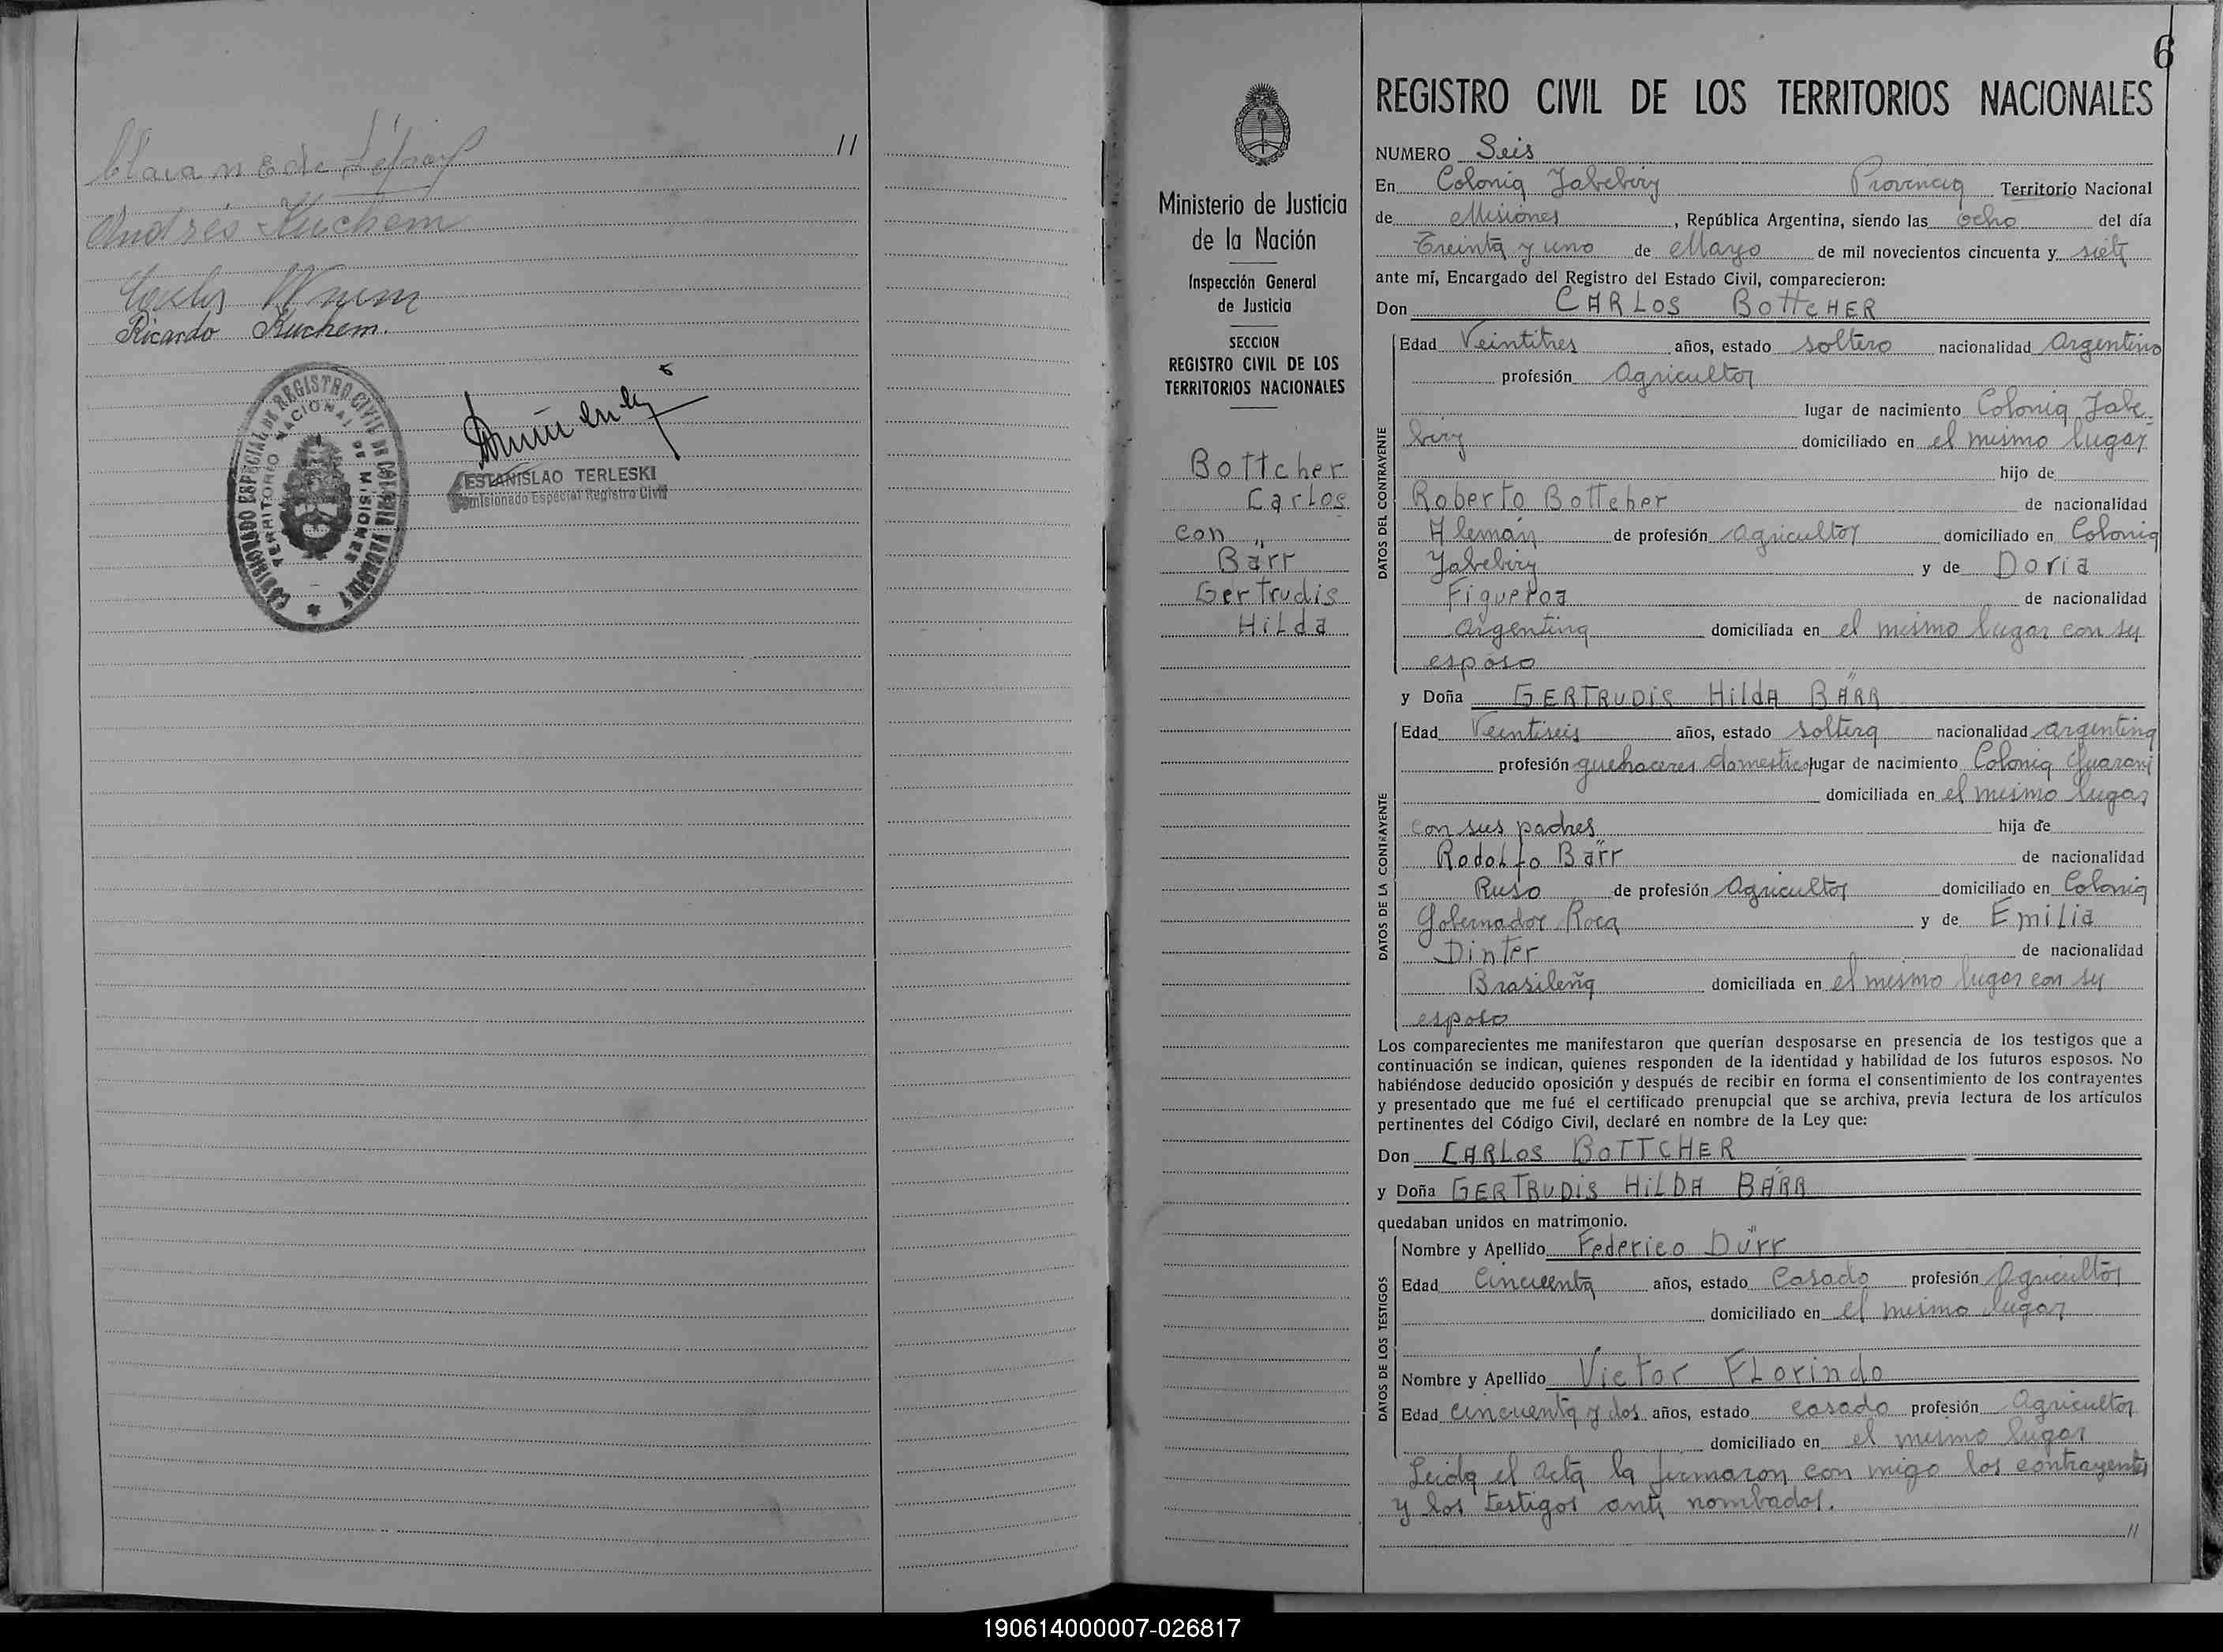 //
Andrés Kuchem
Ricardo Kuchem.
ESTANISLAO TERLESKI
Comisionado Especial Registro Civil
COMISIONADO ESPECIAL DE REGISTRO CIVIL DE COLONIA
TERRITORIO NACIONAL DE MISIONES
6
Ministerio de Justicia
de la Nación
Inspección General
de Justicia
SECCION
REGISTRO CIVIL DE LOS
TERRITORIOS NACIONALES
Bottcher
Carlos
con
Bärr
Gertrudis
Hilda
REGISTRO CIVIL DE LOS TERRITORIOS NACIONALES
NUMERO Seis
En Colonia Jabebiry Provincia Territorio Nacional
de Misiones, República Argentina, siendo las ocho del día
Treinta y uno de Mayo de mil novecientos cincuenta y siete
ante mí, Encargado del Registro del Estado Civil, comparecieron:
Don CARLOS BOTTCHER
DATOS DEL CONTRAYENTE
Edad Veintitres años, estado soltero nacionalidad Argentino
profesión Agricultor
lugar de nacimiento Colonia Jabe-
biry domiciliado en el mismo lugar
hijo de
Roberto Bottcher de nacionalidad
Alemán de profesión Agricultor domiciliado en Colonia
Jabebiry y de Doria
Figueroa de nacionalidad
argentina domiciliada en el mismo lugar con su
esposo
y Doña GERTRUDIS HildA BÄRR
DATOS DE LA CONTRAYENTE
Edad Veintiseis años, estado soltera nacionalidad argentina
profesión quehaceres domesticos lugar de nacimiento Colonia Guarani
domiciliada en el mismo lugar
con sus padres hija de
Rodolfo Bärr de nacionalidad
Ruso de profesión Agricultor domiciliado en Colonia
Gobernador Roca y de Emilia
Dinter de nacionalidad
Brasileña domiciliada en el mismo lugar con su
esposo
Los comparecientes me manifestaron que querían desposarse en presencia de los testigos que a
continuación se indican, quienes responden de la identidad y habilidad de los futuros esposos. No
habiéndose deducido oposición y después de recibir en forma el consentimiento de los contrayentes
y presentado que me fué el certificado prenupcial que se archiva, previa lectura de los artículos
pertinentes del Código Civil, declaré en nombre de la Ley que:
Don CARLOS BOTTCHER
y Doña GERTRUDIS HILDA BÄRR
quedaban unidos en matrimonio.
DATOS DE LOS TESTIGOS
Nombre y Apellido Federico Dürr
Edad Cincuenta años, estado Casado profesión Agricultor
domiciliado en el mismo lugar
Nombre y Apellido Victor Florindo
Edad cincuenta y dos años, estado casado profesión Agricultor
domiciliado en el mismo lugar
Leida el acta la firmaron con migo los contrayentes
y los testigos ante nombados.
//
190614000007-026817